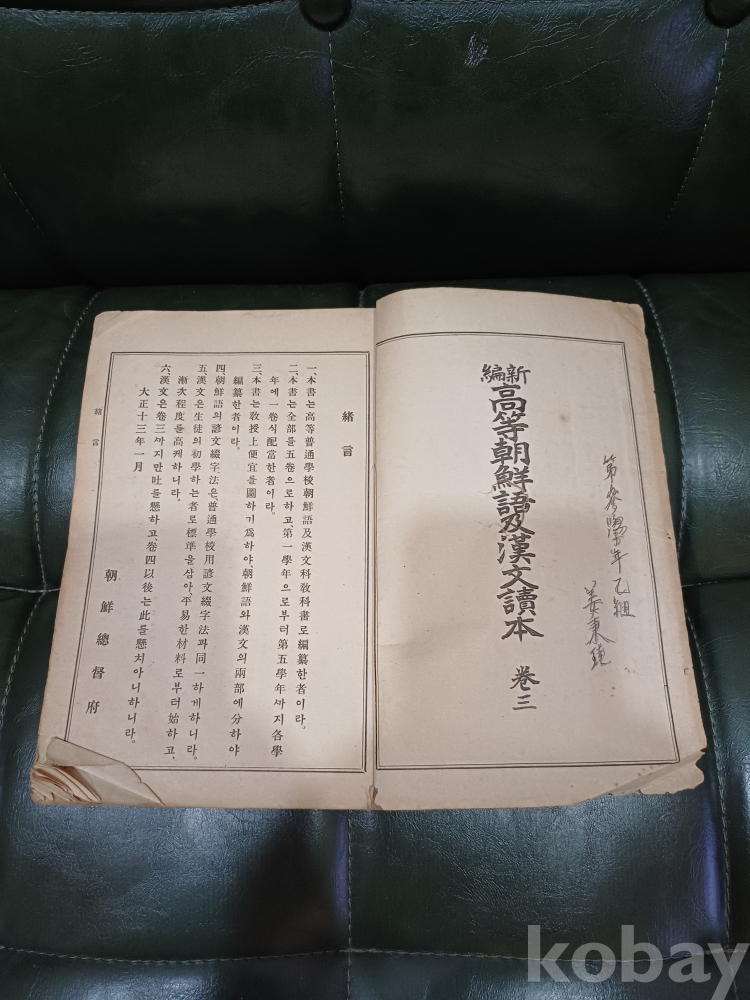 新編
高等朝鮮語及漢文讀本 卷三
第參學年乙組
姜東
緖言
一、本書는高等普通學校朝鮮語及漢文科敎科書로編纂한者이라。
二、本書는全部를五卷으로하고、第一學年으로부터第五學年ᄭᅡ지各學
年에一卷식配當한者이라。
三、本書는敎授上便宜를圖하기爲하야、朝鮮語와漢文의兩部에分하야
編纂한者이라。
四、朝鮮語의諺文綴字法은、普通學校用諺文綴字法과同一하게하니라。
五、漢文은生徒의初學하는者로標準을삼아、平易한材料로부터始하고、
漸次程度를高케하니라。
六、漢文은卷三ᄭᅡ지만吐를懸하고、卷四以後는此를懸치아니하니라。
大正十三年一月
朝鮮總督府
緖言
kobay